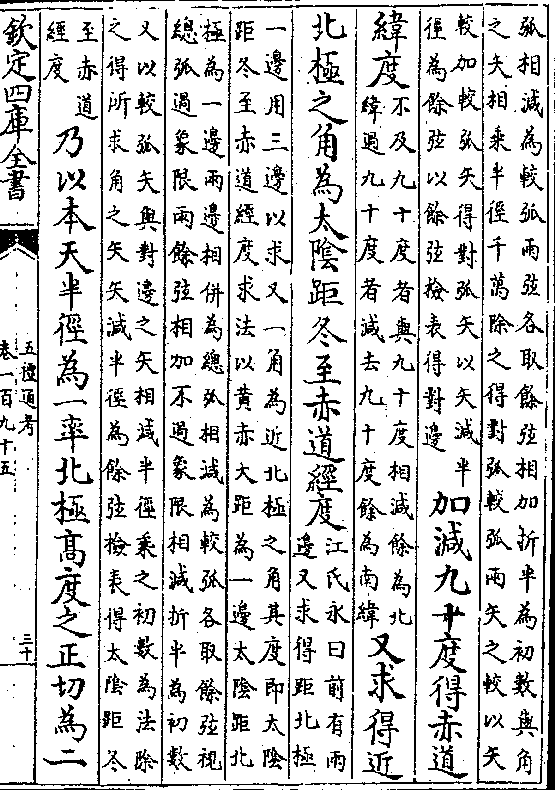 弧相減為較弧兩弦各取餘弦相加折半為初數與角
之矢相乘半徑千萬除之得對弧較弧兩矢之較以矢
較加較弧矢得對弧矢以矢減半
徑為餘弦以餘弦檢表得對邊
加減九十度得赤道
緯度
不及九十度者與九十度相減餘為北
緯過九十度者減去九十度餘為南緯
又求得近
北極之角為太陰距冬至赤道經度
江氏永曰前有兩
邊又求得距北極
一邊用三邊以求又一角為近北極之角其度即太陰
距冬至赤道經度求法以黃赤大距為一邊太陰距北
極為一邊兩邊相併為總弧相減為較弧各取餘弦視
總弧過象限兩餘弦相加不過象限相減折半為初數
又以較弧矢與對邊之矢相減半徑乘之初數為法除
之得所求角之矢矢減半徑為餘弦檢表得太陰距冬
至赤道
經度
乃以本天半徑為一率北極高度之正切為二
欽定四庫全書
五禮通考
卷一百九十五
三十